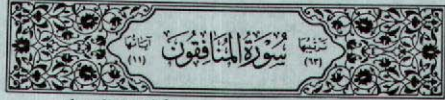 ترتيبها (٦٣) سُورَةُ المُنَافِقُونَ آياتها (١١)